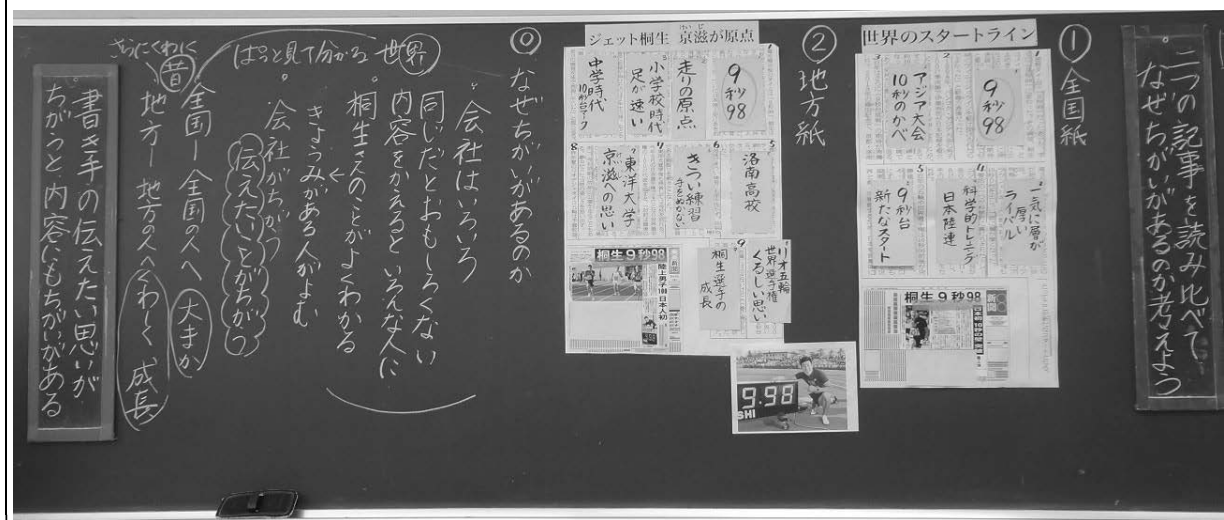 二つの記事を読み比べて
なぜちがいがあるのか考えよう
①全国紙
世界のスタートライン
1
9秒98
2
アジア大会
10秒のかべ
3
一気に層が
厚い
ライバル
4
科学的トレーニング
日本陸連
5
9秒台
新たなスタート
桐生9秒98
②地方紙
ジェット桐生 京滋が原点
けいじ
1
9秒98
走りの原点
小学校時代
足が速い
中学時代
10秒台マーク
5
洛南高校
6
きつい練習
手をぬかない
7
東洋大学
京滋への思い
8
リオ五輪
世界選手権
くるしい思い
9
桐生選手の
成長
桐生9秒98
陸上男子100 日本人初
9.98
SHI
◎なぜちがいがあるのか
会社はいろいろ
同じだとおもしろくない
内容をかえるといろんな人に
桐生さんのことがよくわかる
きょうみがある人がよむ
会社がちがう
伝えたいことがちがう
ぱっと見て分かる 世界
全国ー全国の人へ 大まか
昔
地方ー地方の人へくわしく 成長
さらにくわしく
書き手の伝えたい思いが
ちがうと、内容にもちがいがある